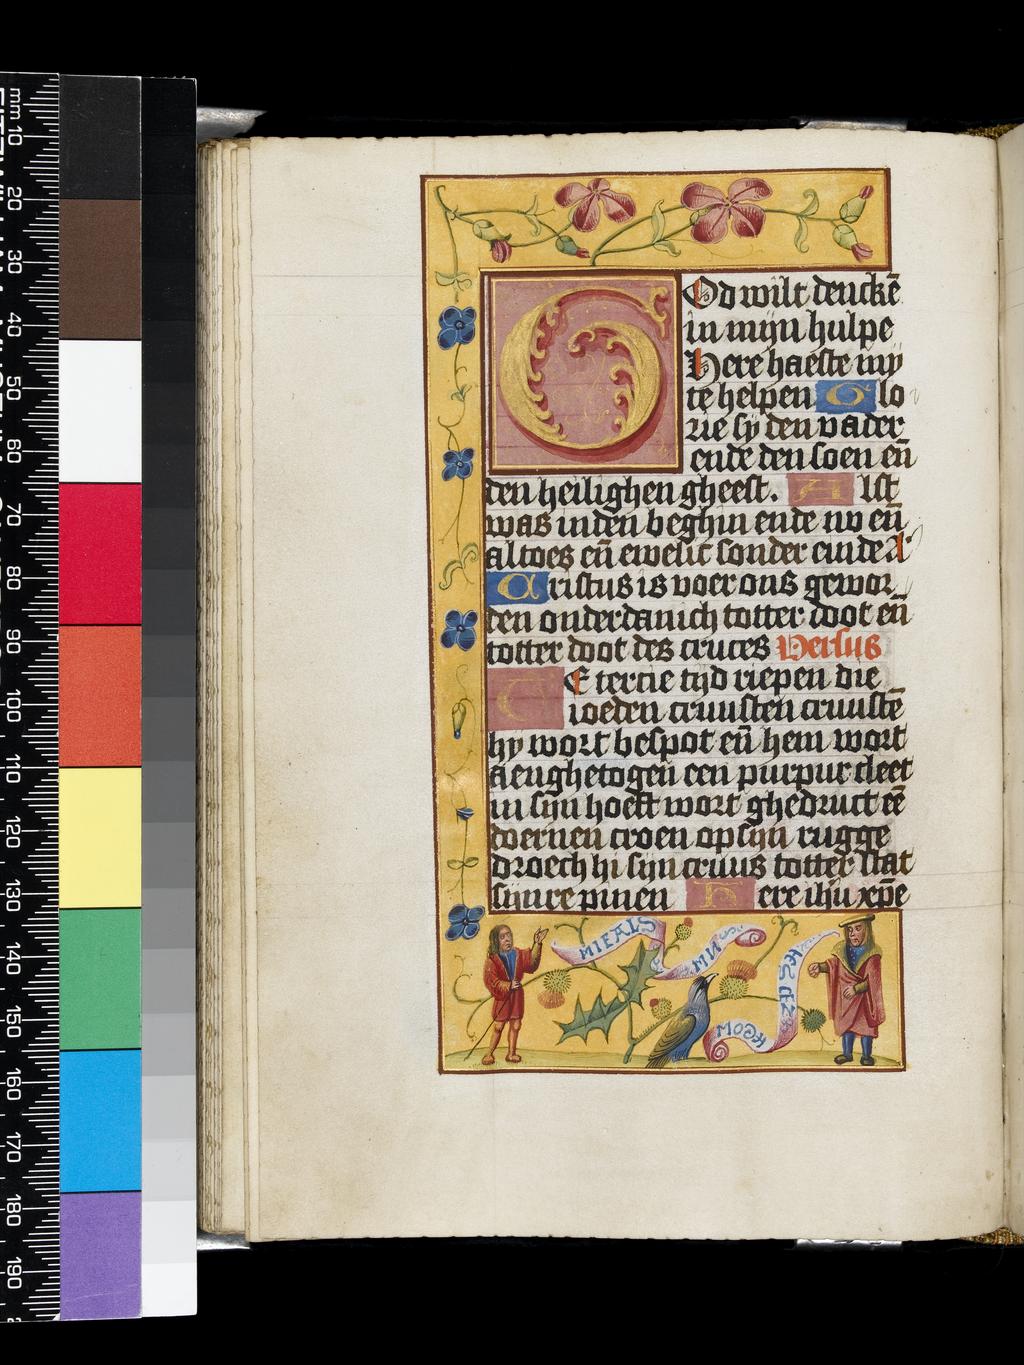 God wilt dencke̅
in mijn hulpe
Here haeste my
te helpen Glo
rie sy den vader
ende den soen en̅
den heilighen gheest. Alst
was inden beghin ende nv en̅
altoes en̅ ewelic sonder einde A
Cristus is voer ons gewor
den onderdanich totter doot en̅
totter doot des cruces Versus
TE tercie tijd riepen die
ioeden cruusten cruuste̅
hy wort bespot en̅ hem wort
aenghetogen een purpur cleet
in sijn hoeft wort ghedruct ee̅
doernen croen op sijn rugge
droech hi sijn cruus totter stat
sijnre pinen Here ihu xpe
MIEATS
MNS
MOGH
mm 10 20 30 40 50 60 70 80 90 100 110 120 130 140 150 160 170 180 190